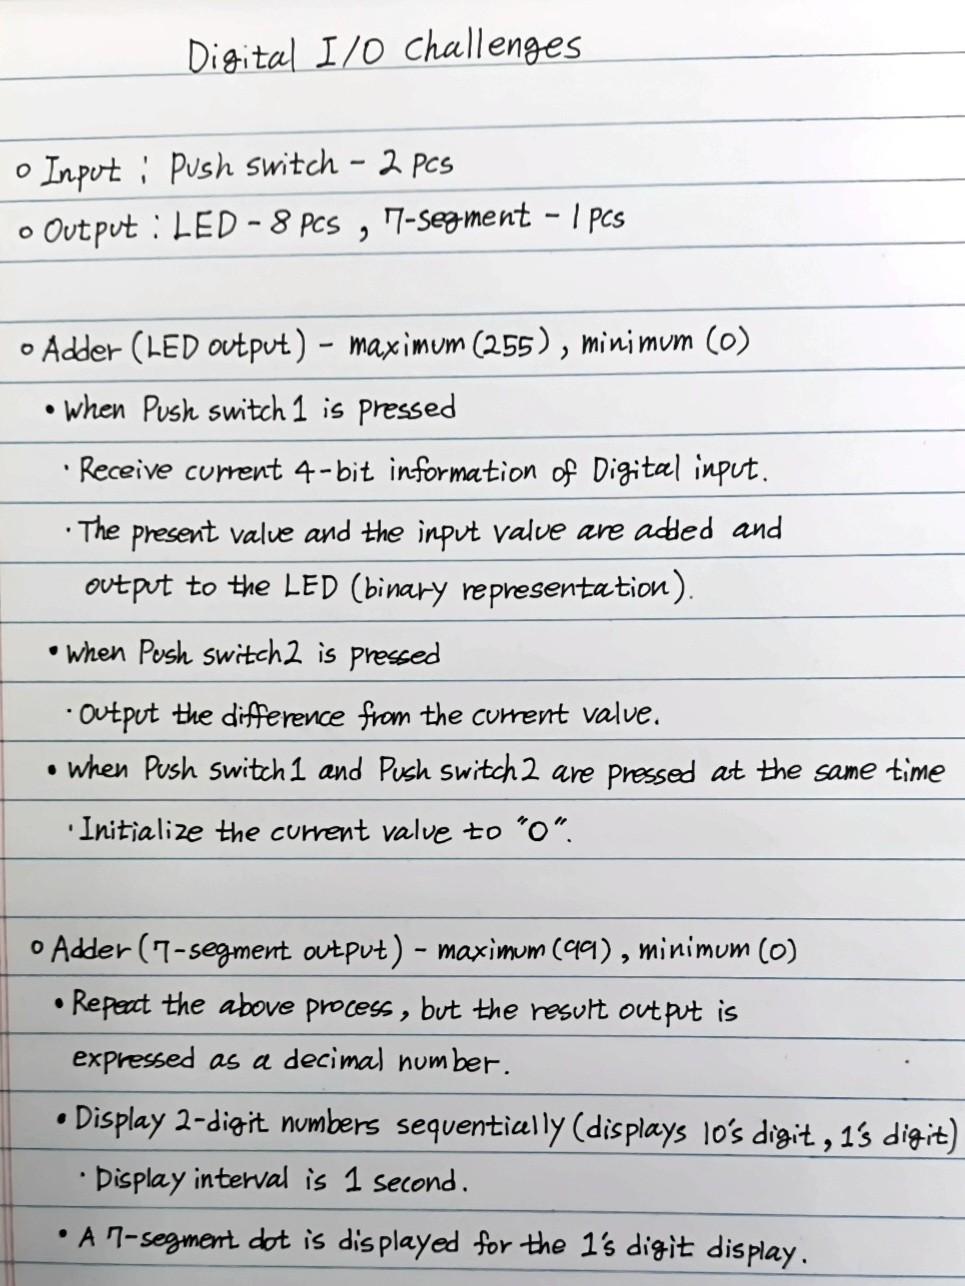 Digital I/O Challenges
○ Input : Push switch - 2 pcs
○ Output : LED - 8 pcs , 7-segment - 1 pcs
○ Adder (LED output) - maximum (255) , minimum (0)
• When Push switch1 is pressed
· Receive current 4-bit information of Digital input.
· The present value and the input value are added and
output to the LED (binary representation).
• When Push switch2 is pressed
· Output the difference from the current value.
• When Push switch1 and Push switch2 are pressed at the same time
· Initialize the current value to "0".
○ Adder (7-segment output) - maximum (99) , minimum (0)
• Repeat the above process, but the result output is
expressed as a decimal number.
• Display 2-digit numbers sequentially (displays 10's digit , 1's digit)
· Display interval is 1 second.
• A 7-segment dot is displayed for the 1's digit display.